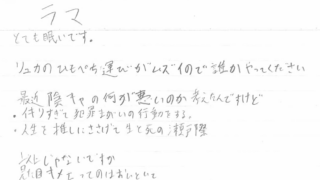 ラマ
とても眠いです。
リュカのひもぺち運びがムズイので誰かやってください
最近 陰キャの何が悪いのか考えたんですけど
・イキりすぎて犯罪まがいの行動をする。
・人生を推しにささげて生と死の瀬戸際
じゃないですか
ってのはおいといて